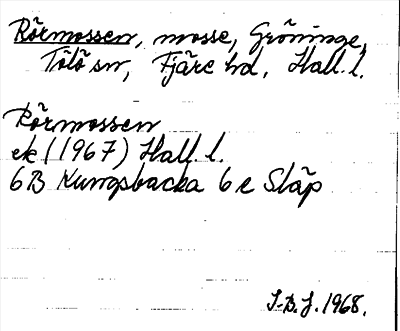 Rörmossen, mosse, Gröninge,
Tölö sn, Fjäre hd, Hall. l.
Rörmossen
ek (1967) Hall. l.
6B Kungsbacka 6e Släp
I-B.J. 1968.